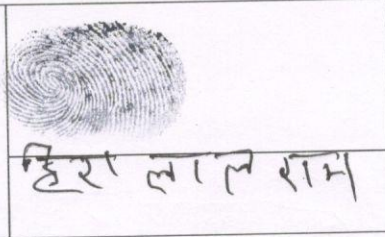 हिरा लाल राम